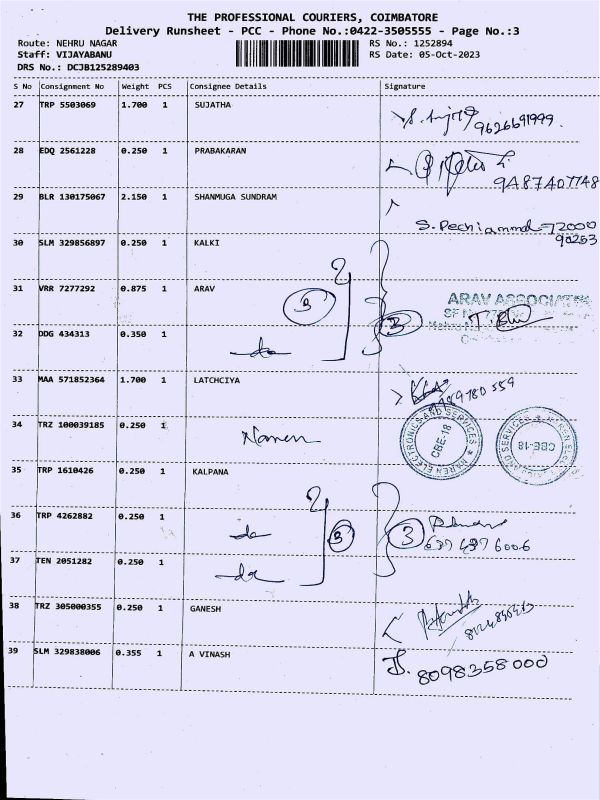 THE PROFESSIONAL COURIERS, COIMBATORE
Delivery Runsheet - PCC - Phone No.:0422-3505555 - Page No.:3
Route: NEHRU NAGAR RS No.: 1252894
Staff: VIJAYABANU RS Date: 05-Oct-2023
DRS No.: DCJB125289403
S No Consignment No Weight PCS Consignee Details Signature
27 TRP 5503069 1.700 1 SUJATHA
9626691999.
28 EDQ 2561228 0.250 1 PRABAKARAN
9487407748
29 BLR 130175067 2.150 1 SHANMUGA SUNDRAM
S. Pechiammal-72000
90253
30 SLM 329856897 0.250 1 KALKI
31 VRR 7277292 0.875 1 ARAV
3 3 ARAV ASSOCIATES
32 DDG 434313 0.350 1
do
33 MAA 571852364 1.700 1 LATCHCIYA
34 TRZ 100039185 0.250 1 Naren
NAREN ELECTRONICS AND SERVICES CBE-18
NAREN ELECTRONICS AND SERVICES CBE-18
35 TRP 1610426 0.250 1 KALPANA
36 TRP 4262882 0.250 1 do 3 3
37 TEN 2051282 0.250 1 do
38 TRZ 305000355 0.250 1 GANESH
39 SLM 329838006 0.355 1 A VINASH
8098358000